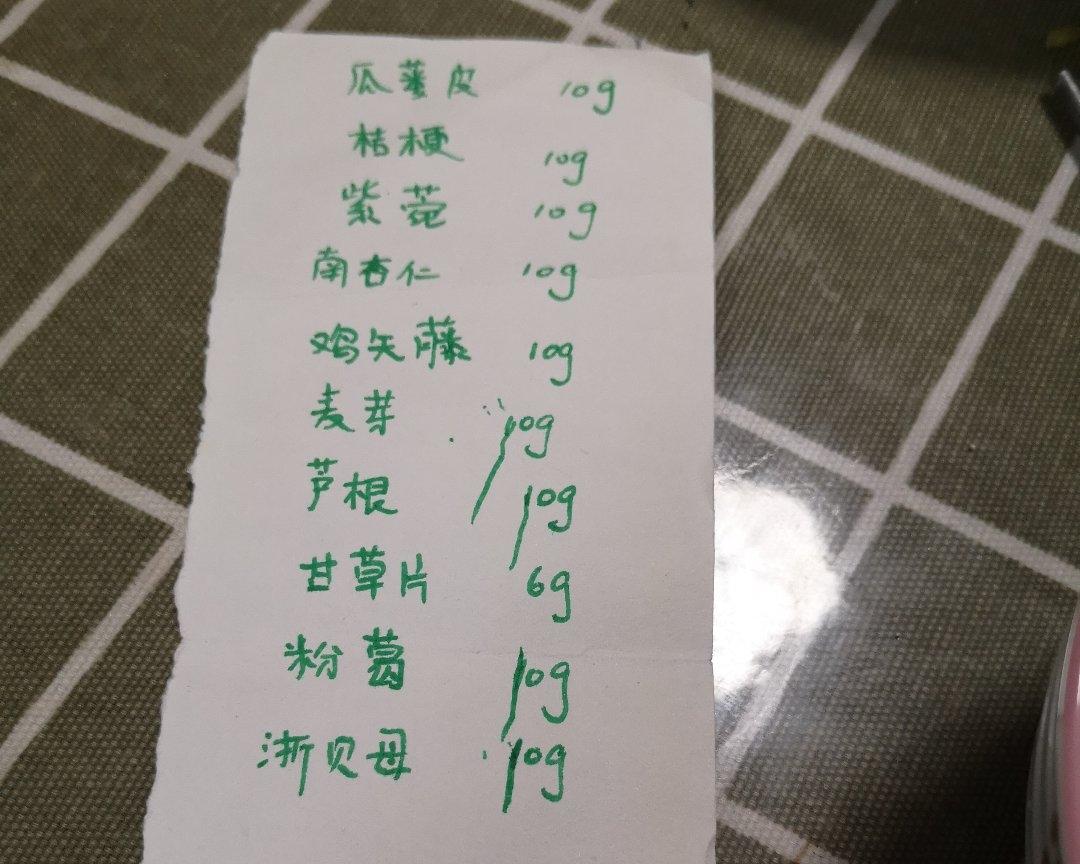 瓜蒌皮 10g
桔梗 10g
紫菀 10g
南杏仁 10g
鸡矢藤 10g
麦芽 10g
芦根 10g
甘草片 6g
粉葛 10g
浙贝母 10g